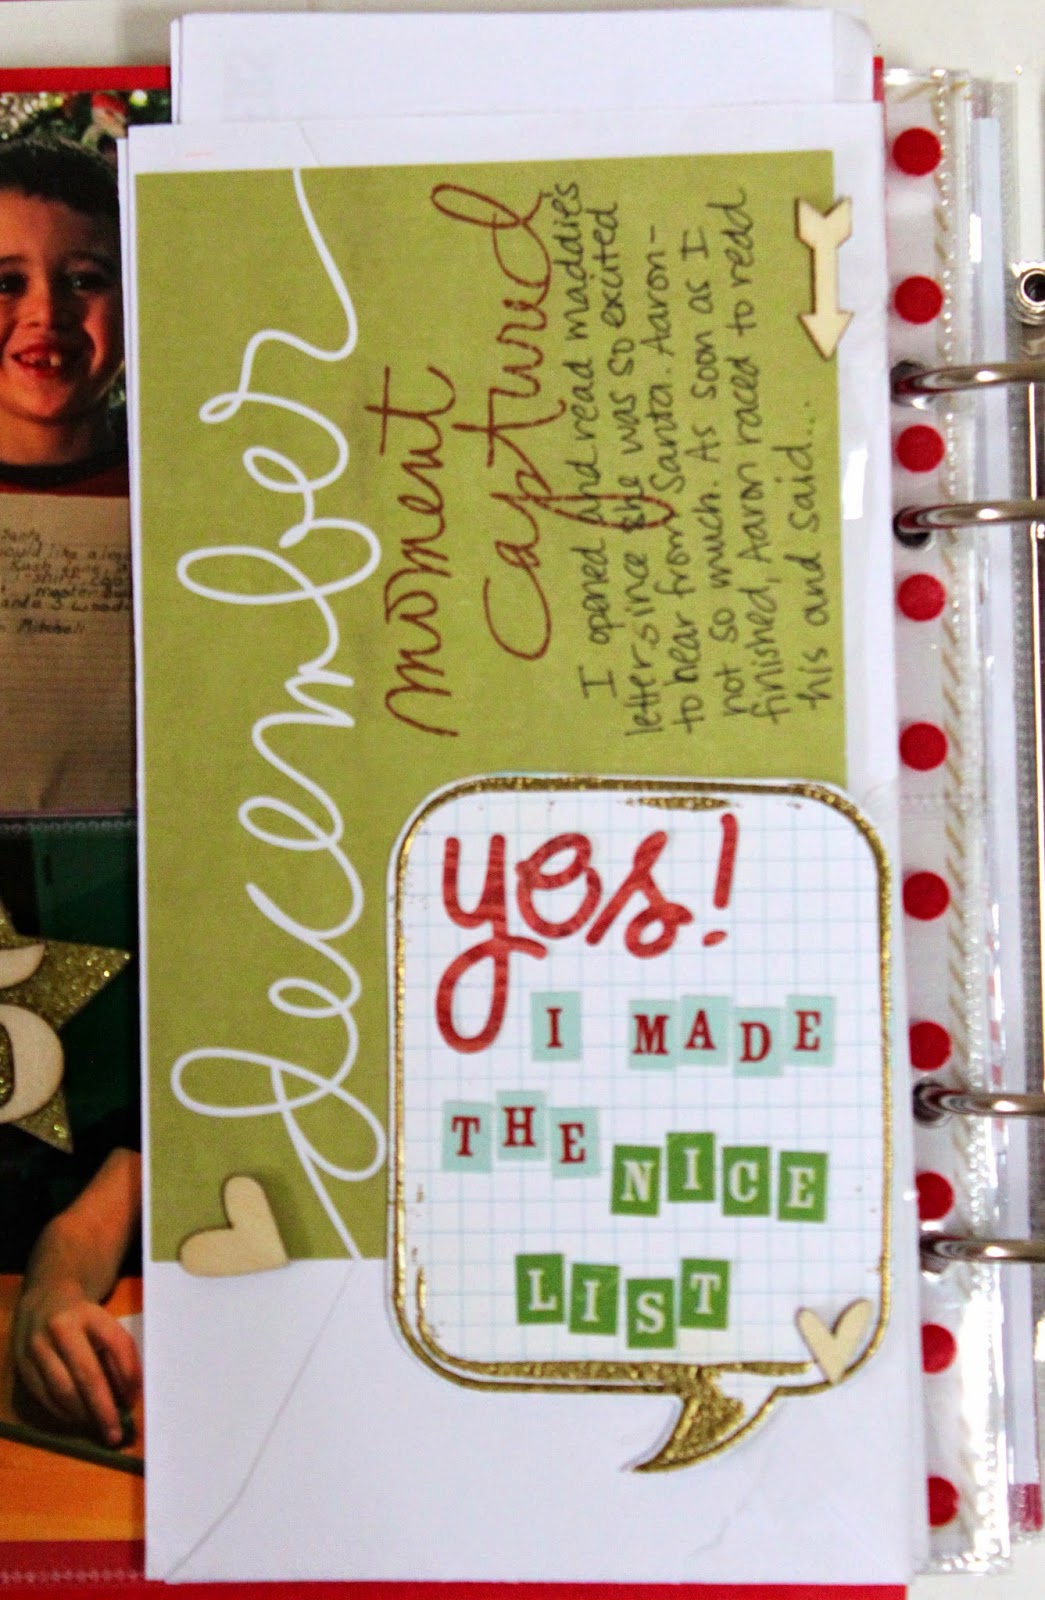 december
moment
captured
I opened and read maddie's
letter since she was so excited
to hear from Santa. Aaron-
not so much. As soon as I
finished, Aaron raced to read
his and said...
yes!
I MADE
THE NICE
LIST
Santa
would like a lego
ship
master
Mitchell